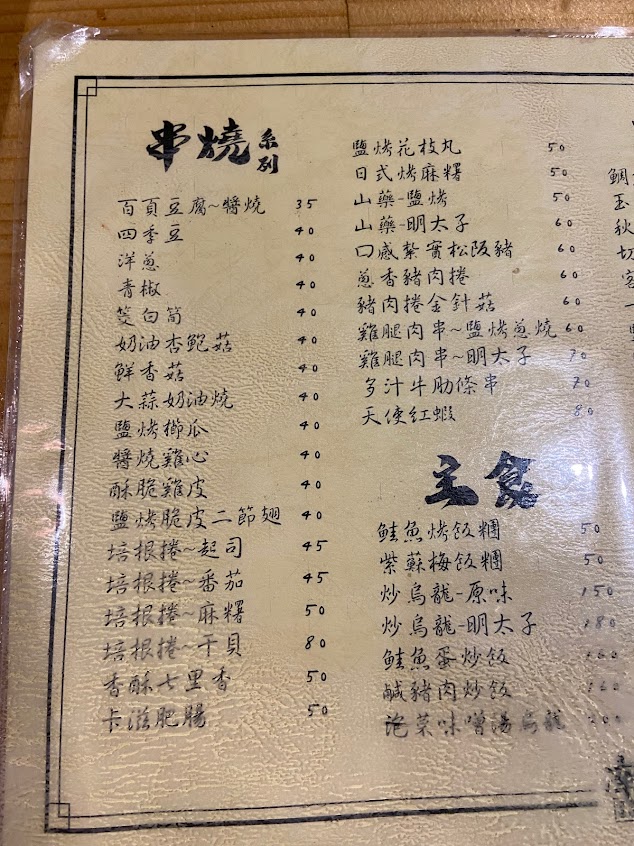 串燒系列
百頁豆腐~醬燒 35
四季豆 40
洋蔥 40
青椒 40
筊白筍 40
奶油杏鮑菇 40
鮮香菇 40
大蒜奶油燒 40
鹽烤櫛瓜 40
醬燒雞心 40
酥脆雞皮 40
鹽烤脆皮二節翅 40
培根捲~起司 45
培根捲~番茄 45
培根捲~麻糬 50
培根捲~干貝 80
香酥七里香 50
卡滋肥腸 50
鹽烤花枝丸 50
日式烤麻糬 50
山藥-鹽烤 50
山藥-明太子 60
口感紮實松阪豬 60
蔥香豬肉捲 60
豬肉捲金針菇 60
雞腿肉串~鹽烤蔥燒 60
雞腿肉串~明太子 70
多汁牛肋條串 70
天使紅蝦 80
主食
鮭魚烤飯糰 50
紫蘇梅飯糰 50
炒烏龍-原味 150
炒烏龍-明太子 180
鮭魚蛋炒飯 160
鹹豬肉炒飯 160
泡菜味噌湯烏龍 200
鯛
玉
秋
切
客